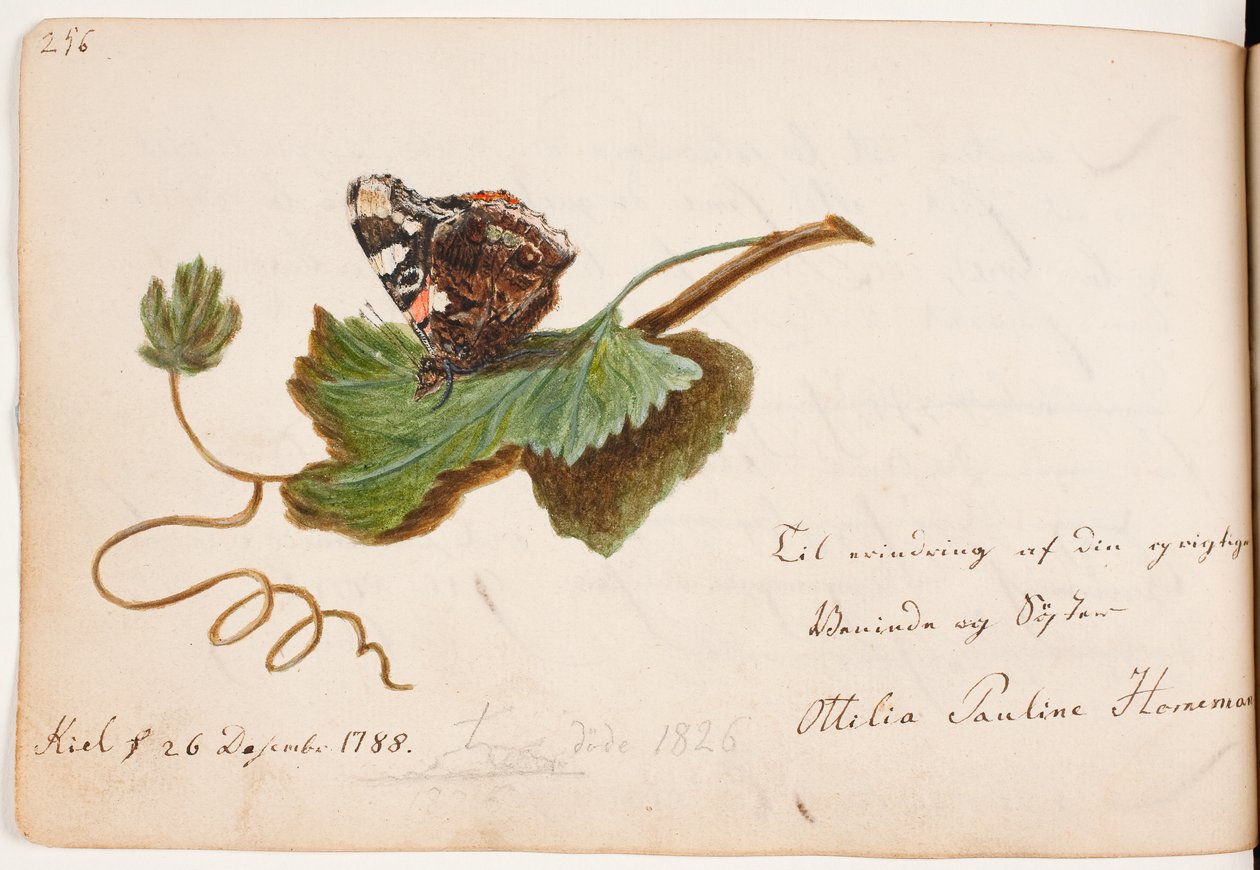 256
Til erindring af din oprigtige
Veninde og Söster
Ottilia Pauline Horneman
Kiel d 26 Desembr. 1788.
döde 1826